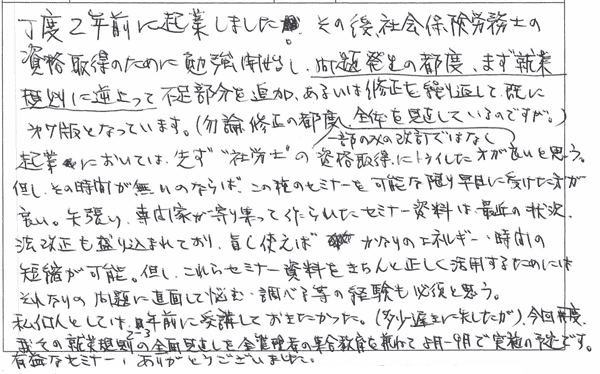 丁度2年前に起業しました。その後社会保険労務士の
資格取得のために勉強開始し、問題発生の都度、まず就業
規則に逆上って不足部分を追加、あるいは修正を繰り返して既に
版となっています。(勿論修正の都度、全体を見直しているのですが。)
一部のみの改訂ではなく
起業においては、先ず"社労士"の資格取得にトライした方が良いと思う。
但し、その時間が無いのならば、この種のセミナーを可能な限り早目に受けた方が
良い。矢張り、専門家が寄り集って作られたセミナー資料は、最近の状況、
法改正も盛り込まれており、旨く使えば かなりのエネルギー・時間の
短縮が可能。但し、これらセミナー資料をきちんと正しく活用するためには
それなりの問題に直面して悩む・調べる等の経験も必須と思う。
私個人としては、2~3年前に受講しておきたかった。(多少遅きに失したが)、今回再度、
我社の就業規則の全面見直しを全管理者の集合教育を兼ねて 月~9月で実施の予定です。
有益なセミナー、ありがとうございました。